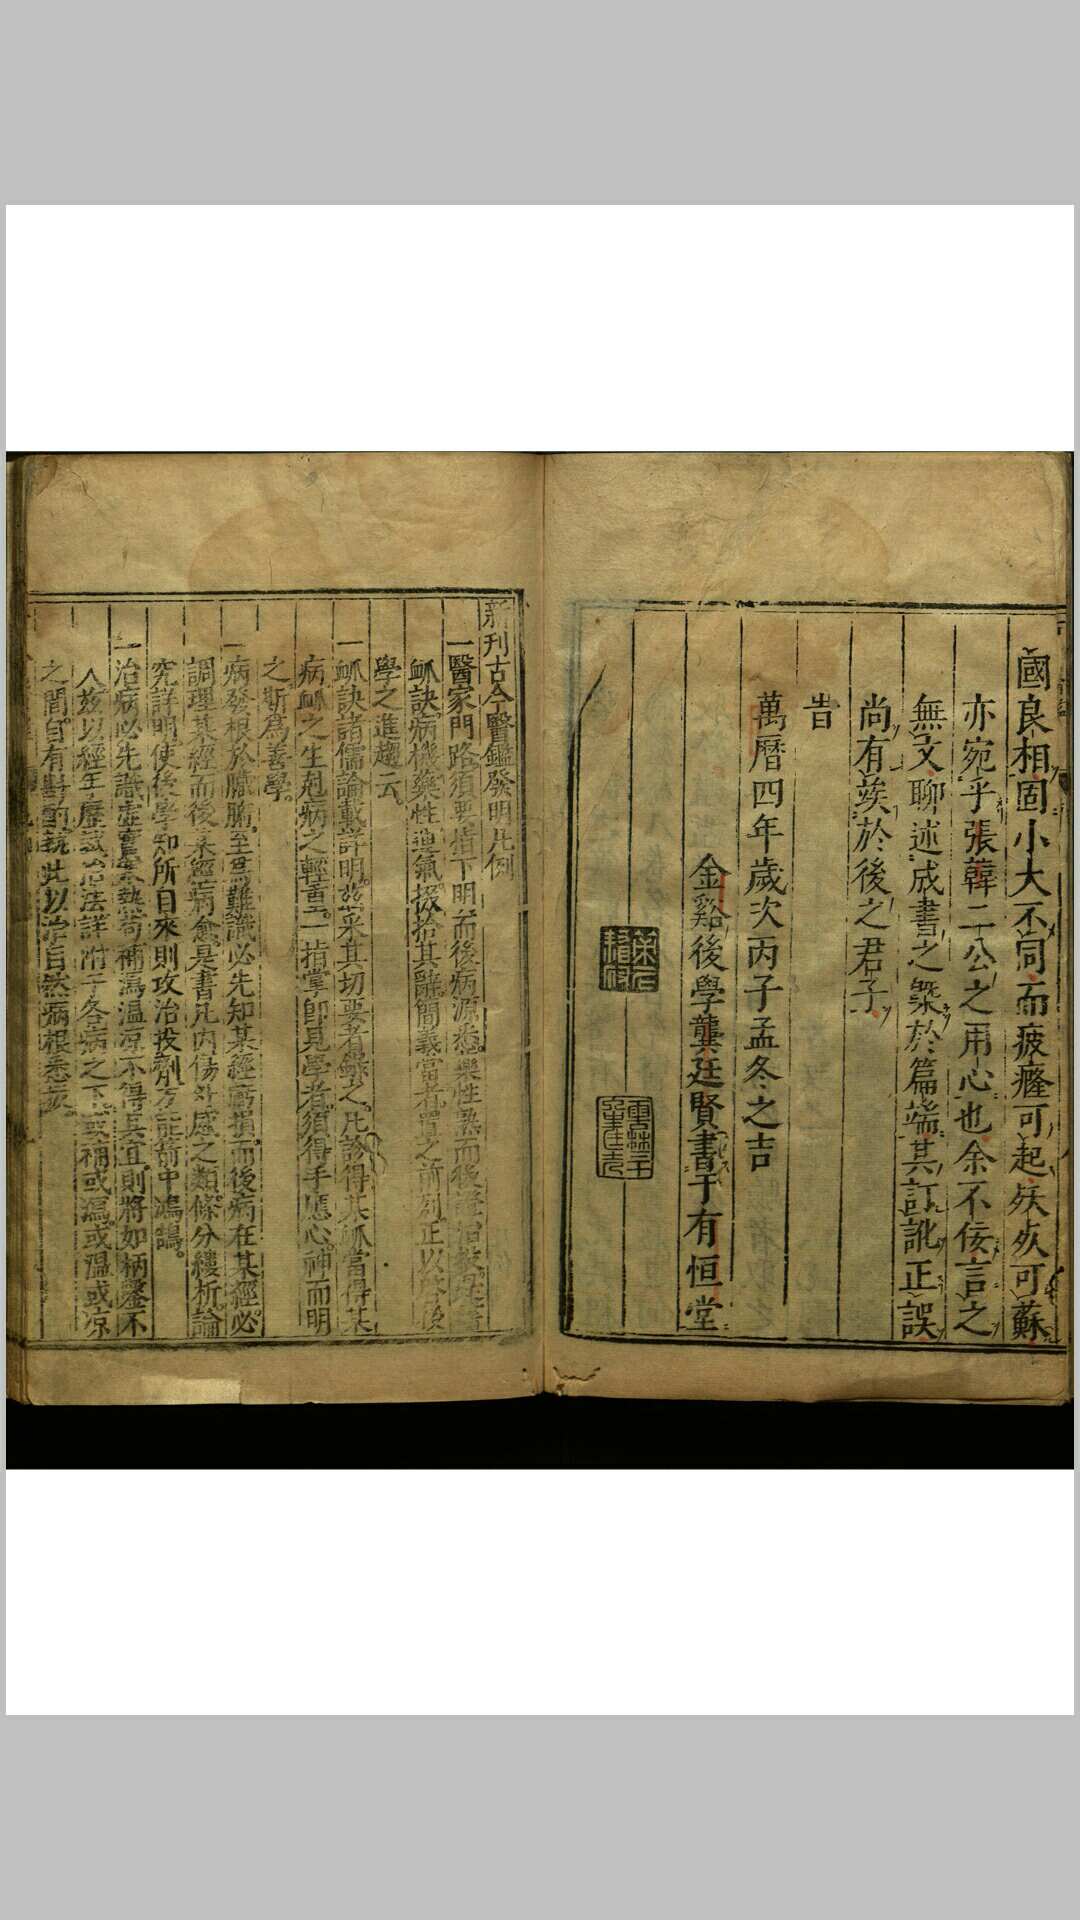 國良相固小大不同而疲癃可起殀歾可蘇
亦宛乎張韓二公之用心也余不佞言之
無文聊述成書之槩於篇端其訂訛正誤
尚有竢於後之君子
旹
萬曆四年歲次丙子孟冬之吉
金谿後學龔廷賢書于有恒堂
新刊古今醫鑑發明凡例
一醫家門路須要指下明而後病源悉藥性熟而後
䘑訣病機藥性運氣掇拾其辭簡義當者置之前列正以啓後
學之進趨云
一䘑訣諸儒論載詳明茲采其切要者錄之凡診得某䘑當得某
病䘑之生尅病之輕重一指掌即見學者須得手應心神而明
之斯為善學
一病發根於臟腑至爲難識必先知某經虧損而後病在某經必
調理某經而後某經病愈是書凡內傷外感之類條分縷析論
究詳明使後學知所自來則攻治投劑方能箭中鴻鵠
一治病必先識虛實寒熱苟補瀉溫凉不得其宜則將如柄鑿不
入茲以經年歷試治法詳附于各病之下或補或瀉或溫或凉
之間自有斟酌執此以治自然病根悉拔